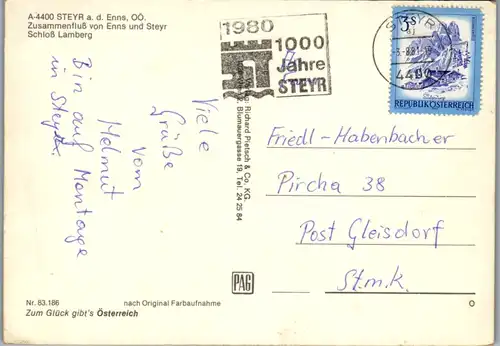 A-4400 STEYR a. d. Enns, OÖ.
Zusammenfluß von Enns und Steyr
Schloß Lamberg
1980
1000
Jahre
STEYR
STEYR
4400
3S
REPUBLIK ÖSTERREICH
Viele
Grüße
vom
Helmut
Bin auf Montage
in Steyr.
Richard Pietsch & Co. KG.
Blumauergasse 19, Tel. 24 25 84
Friedl-Habenbacher
Pircha 38
Post Gleisdorf
Stmk.
PAG
Nr. 83.186
nach Original Farbaufnahme
Zum Glück gibt's Österreich
O